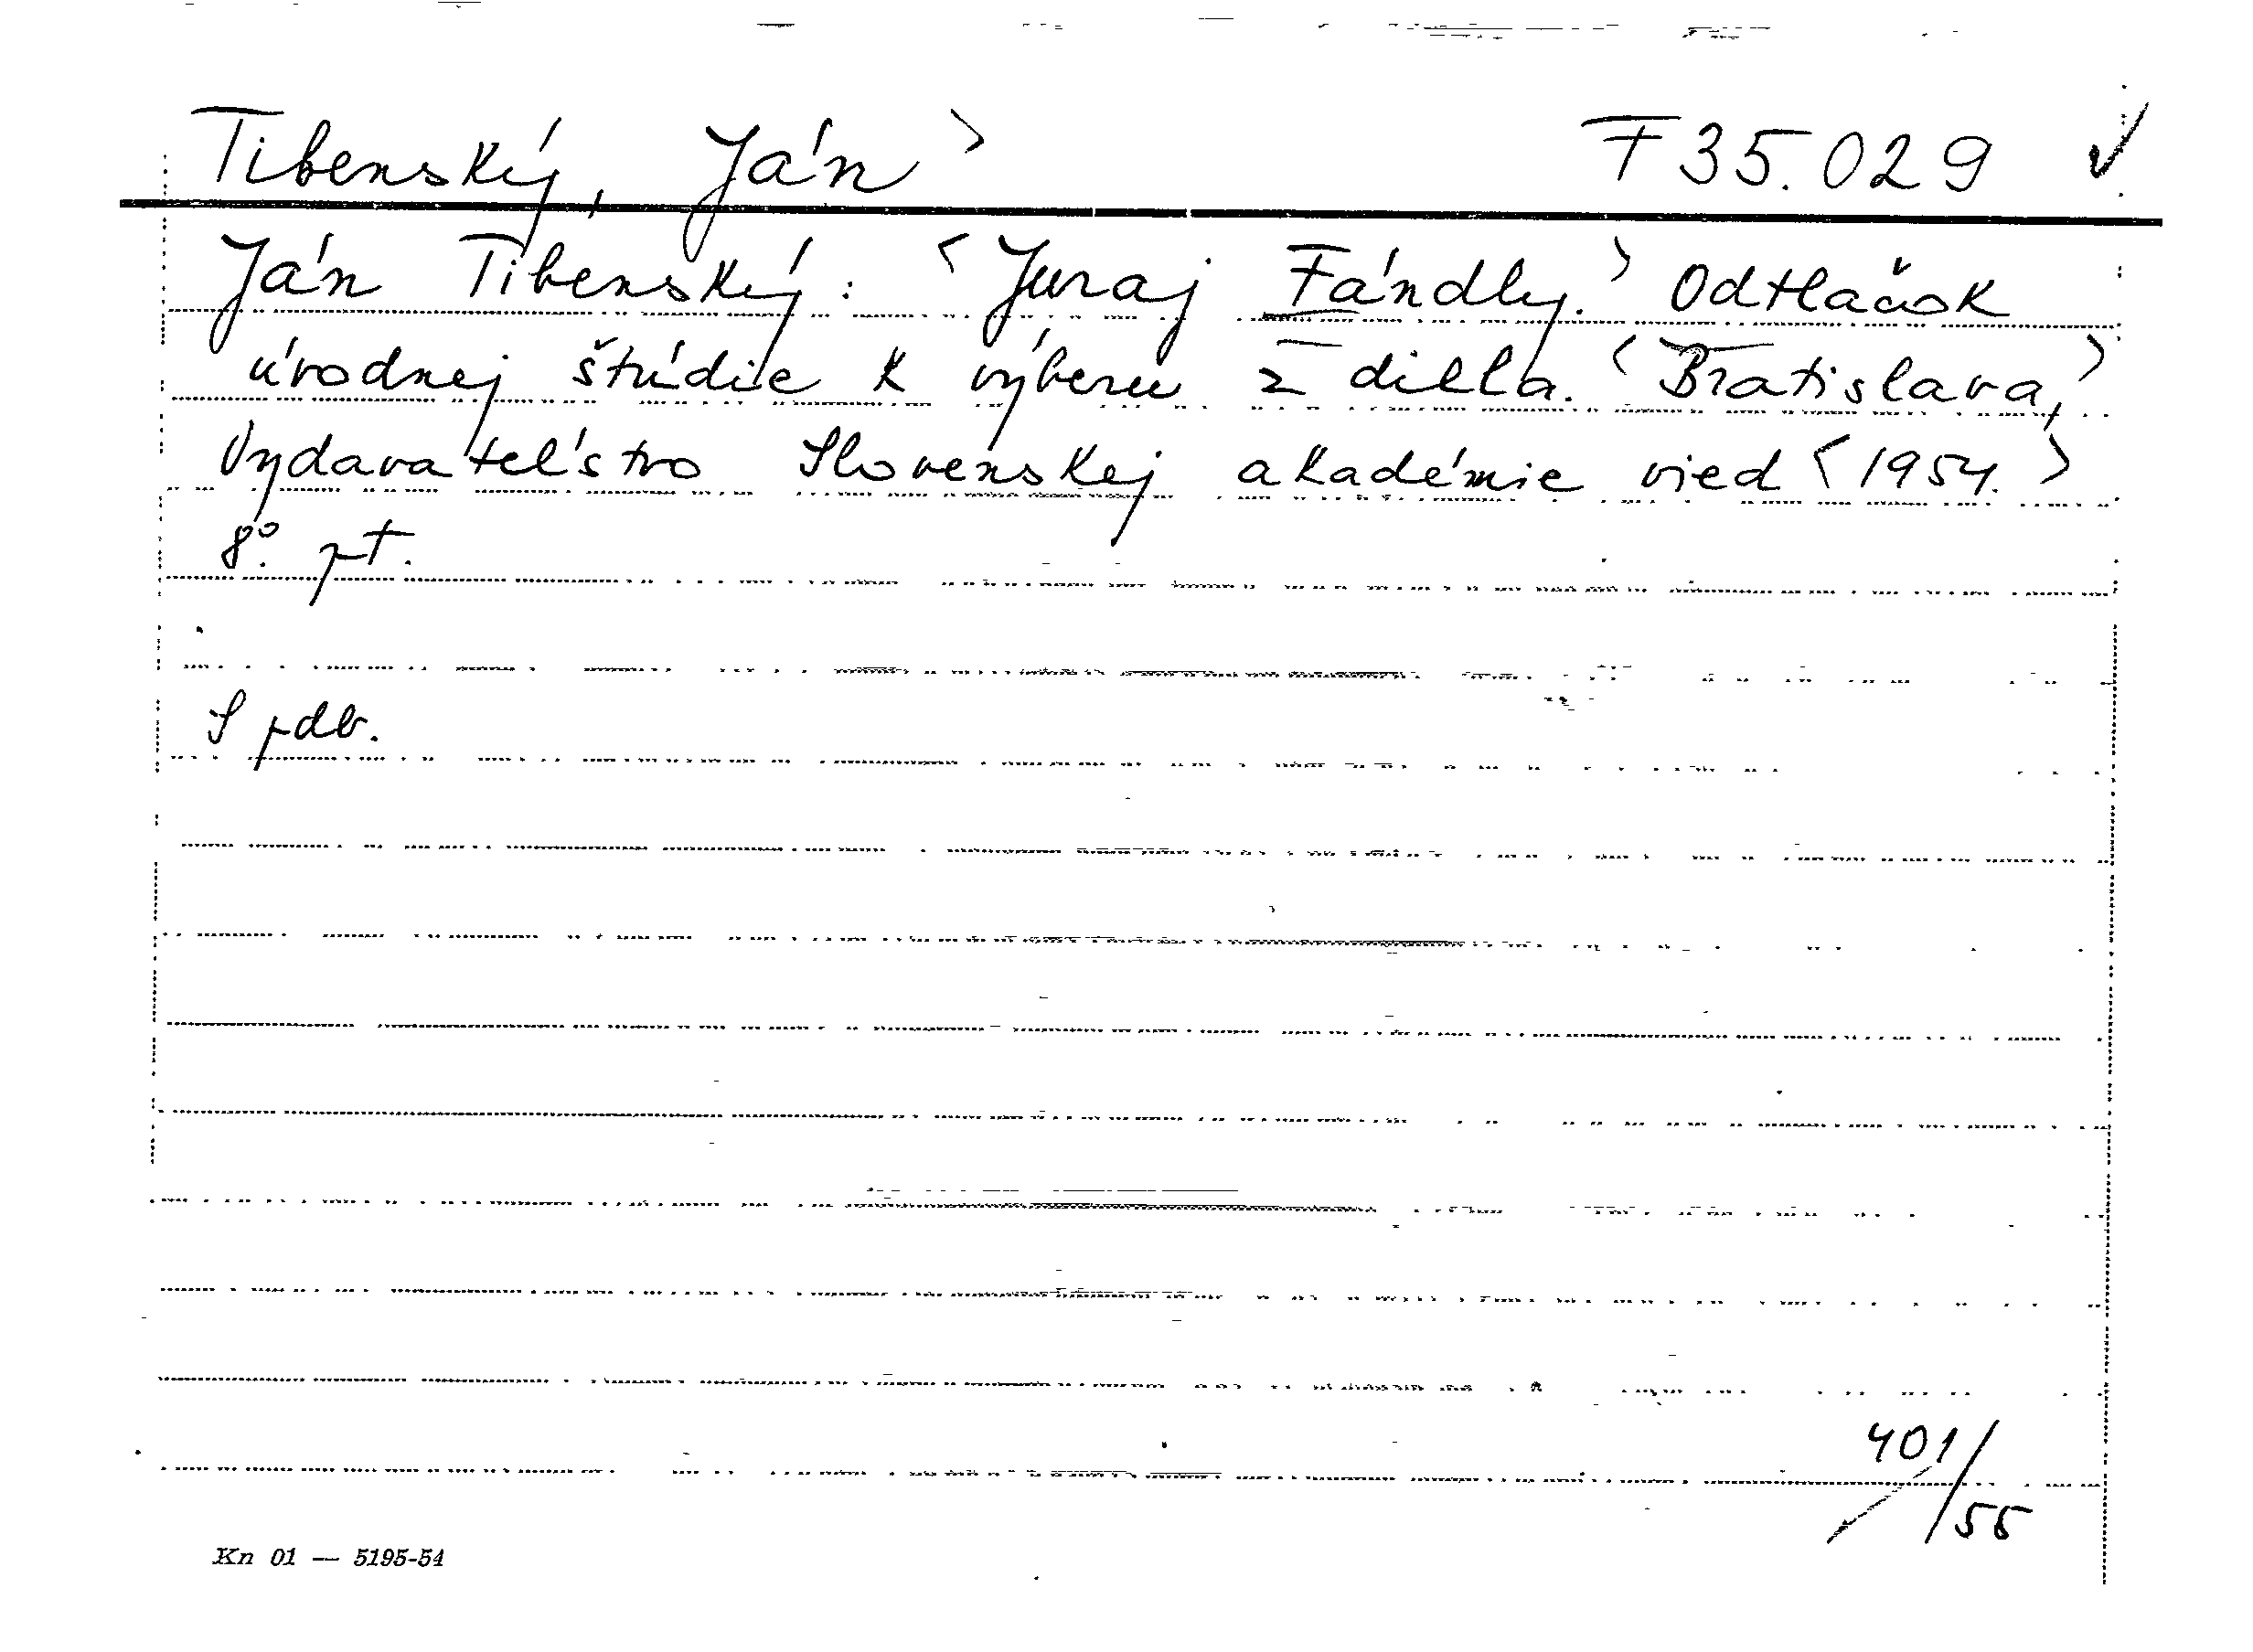 Tibenský, Ján > F 35.029 ✓
Ján Tibenský: <Juraj Fándly.> Odtlačok
úvodnej štúdie k výberu z diela. <Bratislava,>
Vydavateľstvo Slovenskej akadémie vied <1954.>
8°. pt.
S pdb.
401/55
Kn 01 — 5195-54